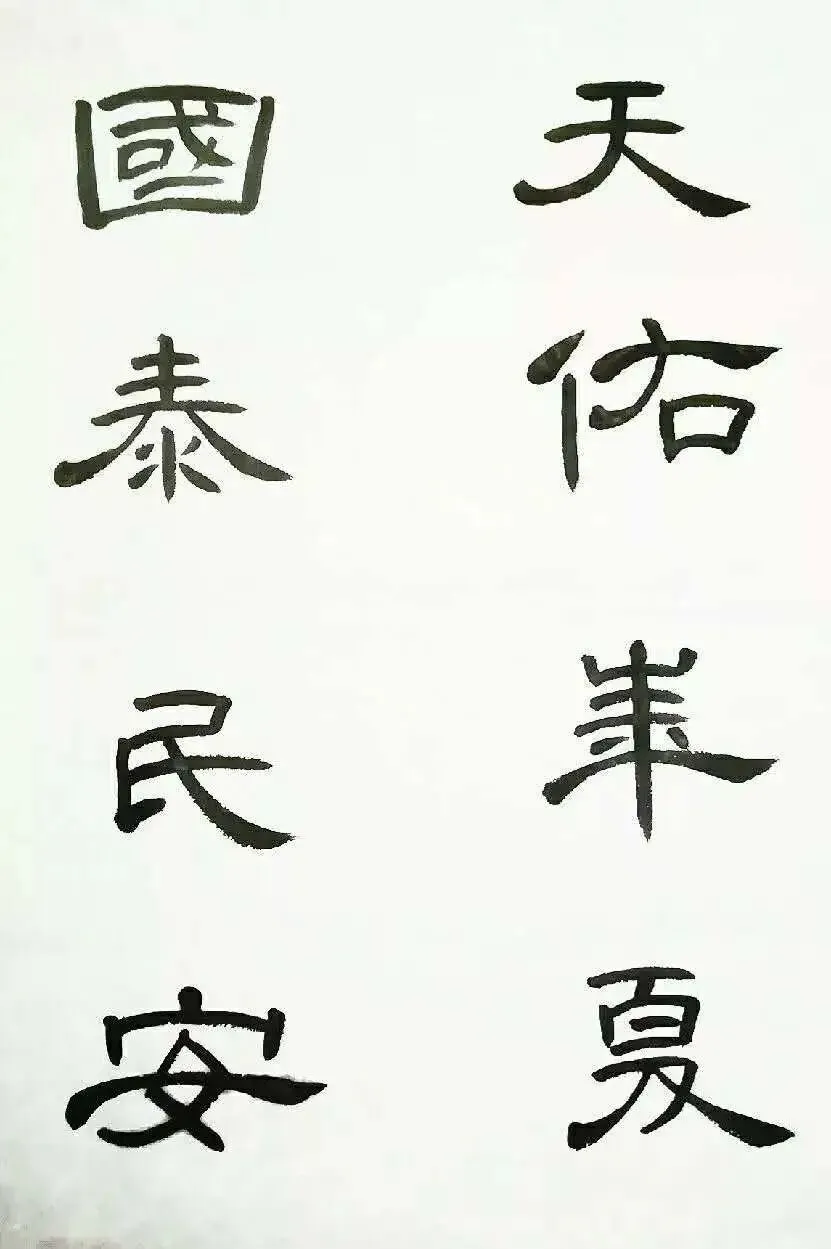 天佑華夏
國泰民安